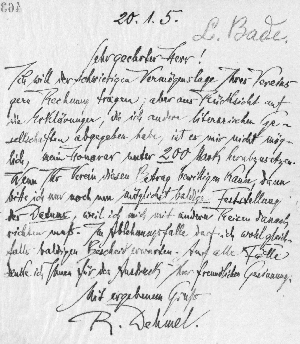 20.1.5.
L. Bade.
Sehr geehrter Herr!
Ich will der schwierigen Vermögenslage Ihres Vereins
gern Rechnung tragen; aber aus Rücksicht auf
die Erklärungen, die ich andern literarischen Ge-
sellschaften abgegeben habe, ist es mir nicht mög-
lich, mein Honorar unter 200 Mark herabzusetzen.
Wenn Ihr Verein diesen Betrag bewilligen kann, dann
bitte ich nur noch um möglichst baldige Feststellung
des Datums, weil ich mich mit andern Reisen danach
richten muß. Im Ablehnungsfalle darf ich wohl gleich-
falls baldigen Bescheid erwarten. Auf alle Fälle
danke ich Ihnen für den Ausdruck Ihrer freundlichen Gesinnung.
Mit ergebenem Gruß
R. Dehmel.